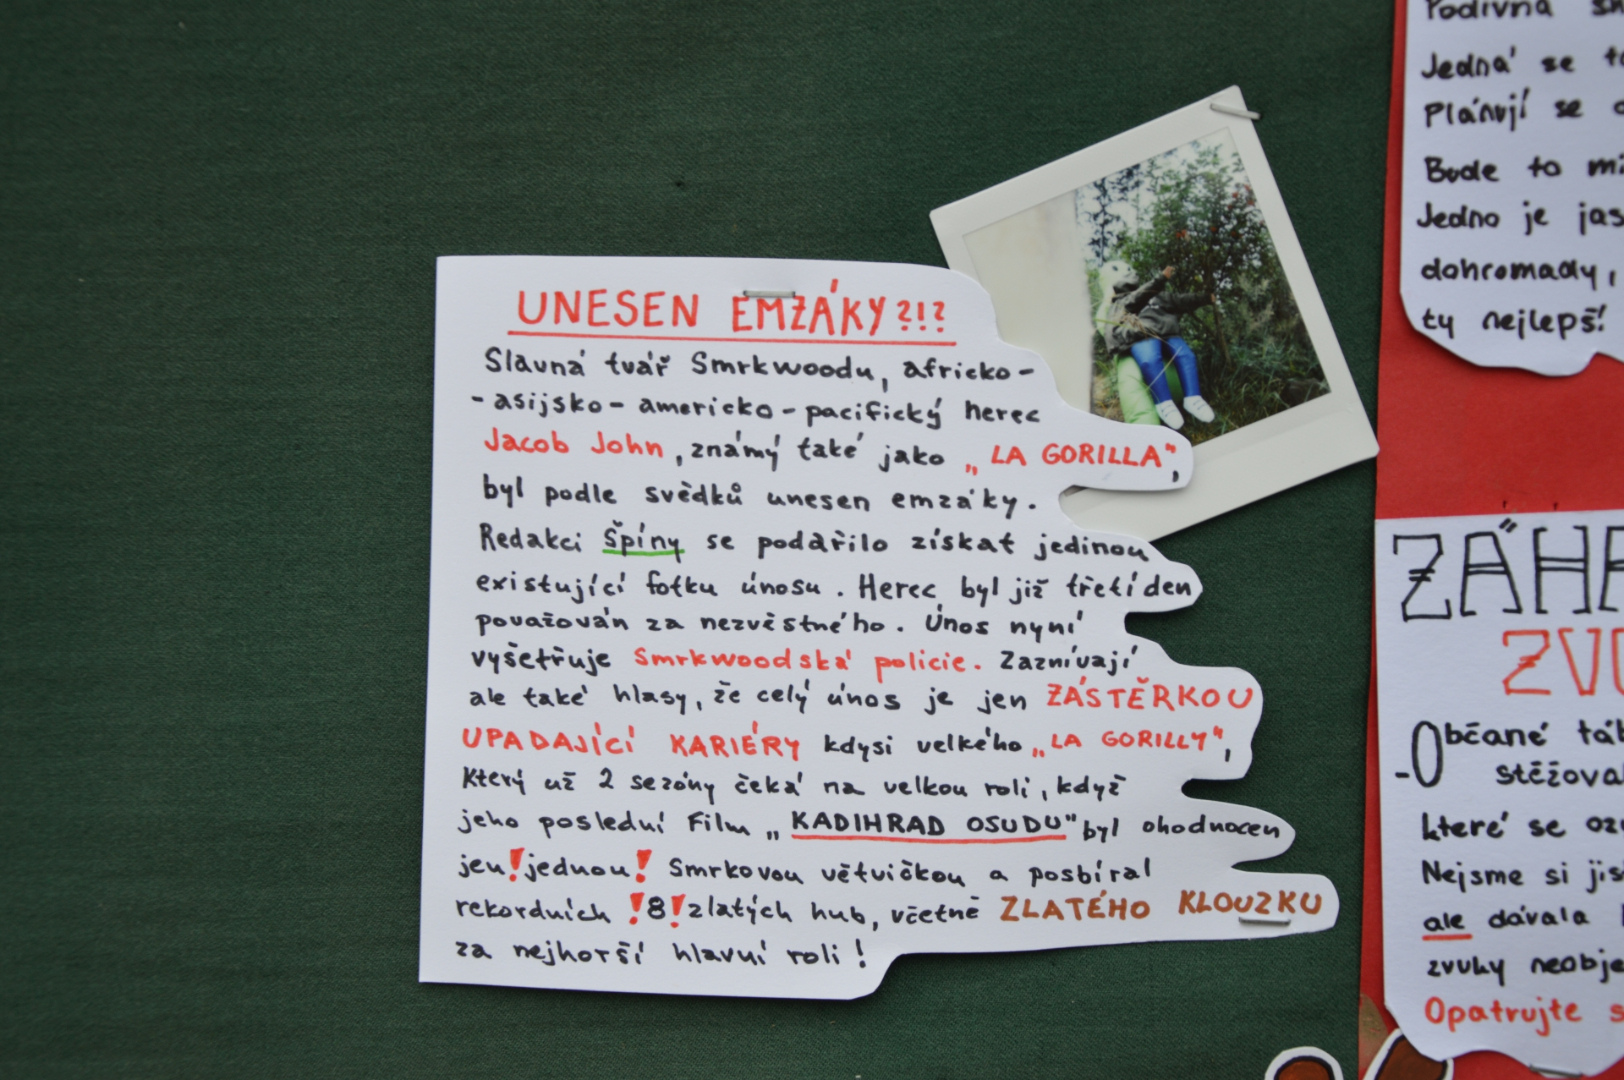 UNESEN EMZÁKY?!?
Slavná tvář Smrkwoodu, africko-
-asijsko-americko-pacifický herec
Jacob John, známý také jako „LA GORILLA",
byl podle svědků unesen emzáky.
Redakci Špíny se podařilo získat jedinou
existující fotku únosu. Herec byl již třetí den
považován za nezvěstného. Únos nyní
vyšetřuje Smrkwoodská policie. Zaznívají
ale také hlasy, že celý únos je jen ZÁSTĚRKOU
UPADAJÍCÍ KARIÉRY kdysi velkého „LA GORILLY",
Který už 2 sezóny čeká na velkou roli, když
jeho poslední Film „KADIHRAD OSUDU" byl ohodnocen
jen!jednou! Smrkovou větvičkou a posbíral
rekordních !8!zlatých hub, včetně ZLATÉHO KLOUZKU
za nejhorší hlavní roli!
Podivná
Jedná se
Plánují se
Bude to
Jedno je
dohromady,
ty nejlepš!
ZÁHA
ZVU
-Občané
stěžoval
které se
Nejsme si
ale dávala
zvuky
Opatrujte